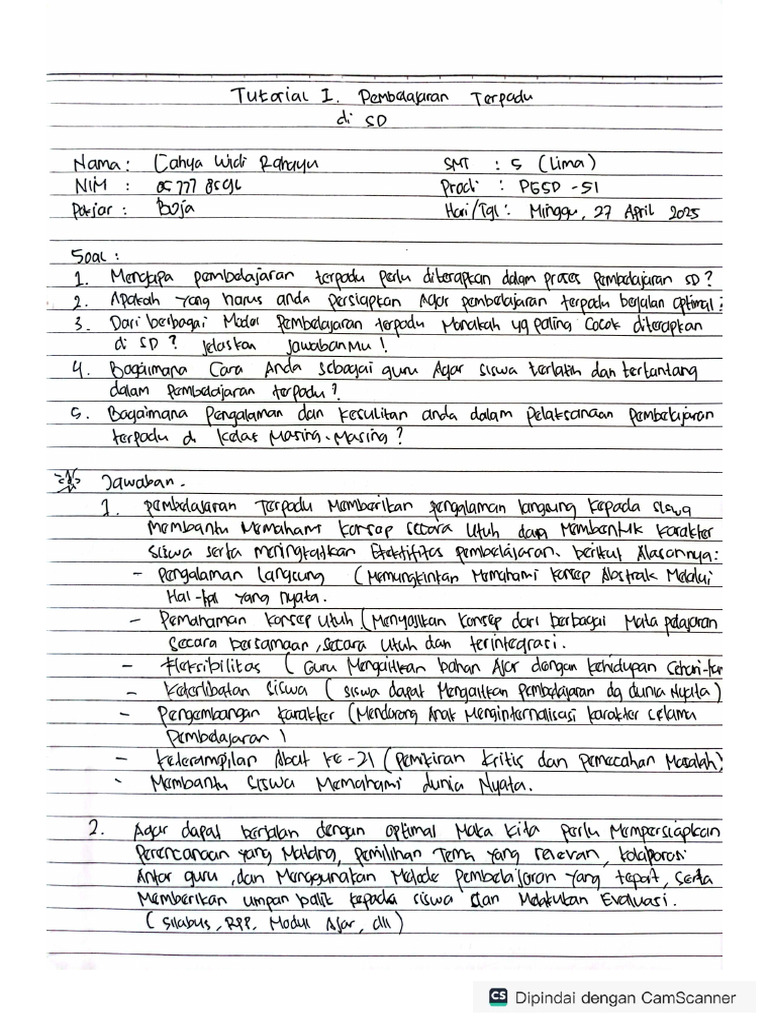 Tutorial I. Pembelajaran Terpadu
di SD
Nama : Cahya Widi Rahayu SMT : 5 (Lima)
NIM : Prodi : PGSD -S1
Pokjar : Boja Hari/Tgl : Minggu, 27 April 2025
Soal :
1. Mengapa pembelajaran terpadu perlu diterapkan dalam proses pembelajaran SD ?
2. Apakah yang harus anda persiapkan Agar pembelajaran terpadu berjalan optimal ?
3. Dari berbagai Model Pembelajaran terpadu Manakah yg paling Cocok diterapkan
di SD ? Jelaskan jawabanMu !
4. Bagaimana Cara Anda sebagai guru Agar siswa terlatih dan tertantang
dalam Pembelajaran terpadu ?
5. Bagaimana Pengalaman dan kesulitan anda dalam pelaksanaan pembelajaran
terpadu di kelas Masing-Masing ?
Jawaban .
1. pembelajaran Terpadu Memberikan pengalaman langsung kepada siswa
Membantu Memahami konsep secara Utuh dan Membentuk karakter
siswa serta meningkatkan Efektifitas pembelajaran. berikut Alasannya :
- Pengalaman Langsung (Memungkinkan Memahami konsep Abstrak Melalui
Hal-hal yang nyata.
- Pemahaman konsep utuh (Menyajikan konsep dari berbagai Mata pelajaran
secara bersamaan, secara utuh dan terintegrasi.
- Fleksibilitas ( Guru Mengaitkan bahan Ajar dengan kehidupan Sehari-har
- Keterlibatan siswa ( siswa dapat Mengaitkan pembelajaran dg dunia Nyata )
- Pengembangan karakter (Mendorong Anak Menginternalisasi karakter selama
Pembelajaran )
- Keterampilan Abad ke-21 (pemikiran kritis dan pemecahan Masalah)
- Membantu siswa Memahami dunia Nyata.
2. Agar dapat berjalan dengan optimal Maka kita perlu Mempersiapkan
Perencanaan yang Matang, pemilihan Tema yang relevan, kolaborasi
Antar guru, dan Menggunakan Metode Pembelajaran yang tepat, serta
Memberikan umpan balik kepada siswa dan Melakukan Evaluasi.
( Silabus, RPP, Modul Ajar, dll )
CS Dipindai dengan CamScanner